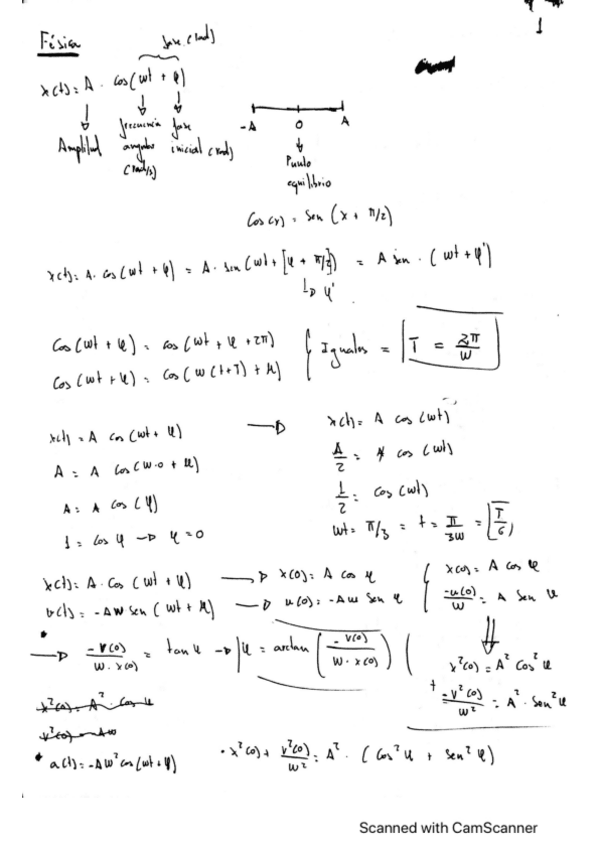 1
Física
fase (rad)
x(t) = A · cos(wt + φ)
Amplitud
frecuencia angular (rad/s)
fase inicial (rad)
-A 0 A
Punto equilibrio
Cos(x) = Sen (x + π/2)
x(t) = A · cos(wt + φ) = A · sen(wt + [φ + π/2]) = A sen · (wt + φ')
↳ φ'
Cos(wt + φ) = cos(wt + φ + 2π)
Cos(wt + φ) = cos(w(t+T) + φ)
{ Iguales = T = 2π/w
x(t) = A cos(wt + φ) → x(t) = A cos(wt)
A = A cos(w·0 + φ)
A = A cos(φ)
1 = cos φ → φ = 0
A/2 = A cos(wt)
1/2 = cos(wt)
wt = π/3 = t = π/3w = T/6
x(t) = A · cos(wt + φ) → x(0) = A cos φ
v(t) = -Aw sen(wt + φ) → v(0) = -Aw sen φ
{ x(0) = A cos φ
-v(0)/w = A sen φ
→ -v(0)/w·x(0) = tan φ → φ = arctan(-v(0)/w·x(0))
x²(0) = A² cos² φ
+ -v²(0)/w² = A² · sen² φ
x²(0) = A² · cos φ
v²(0) = Aw
* a(t) = -Aw² cos(wt + φ)
· x²(0) + v²(0)/w² = A² · (cos² φ + sen² φ)
Scanned with CamScanner